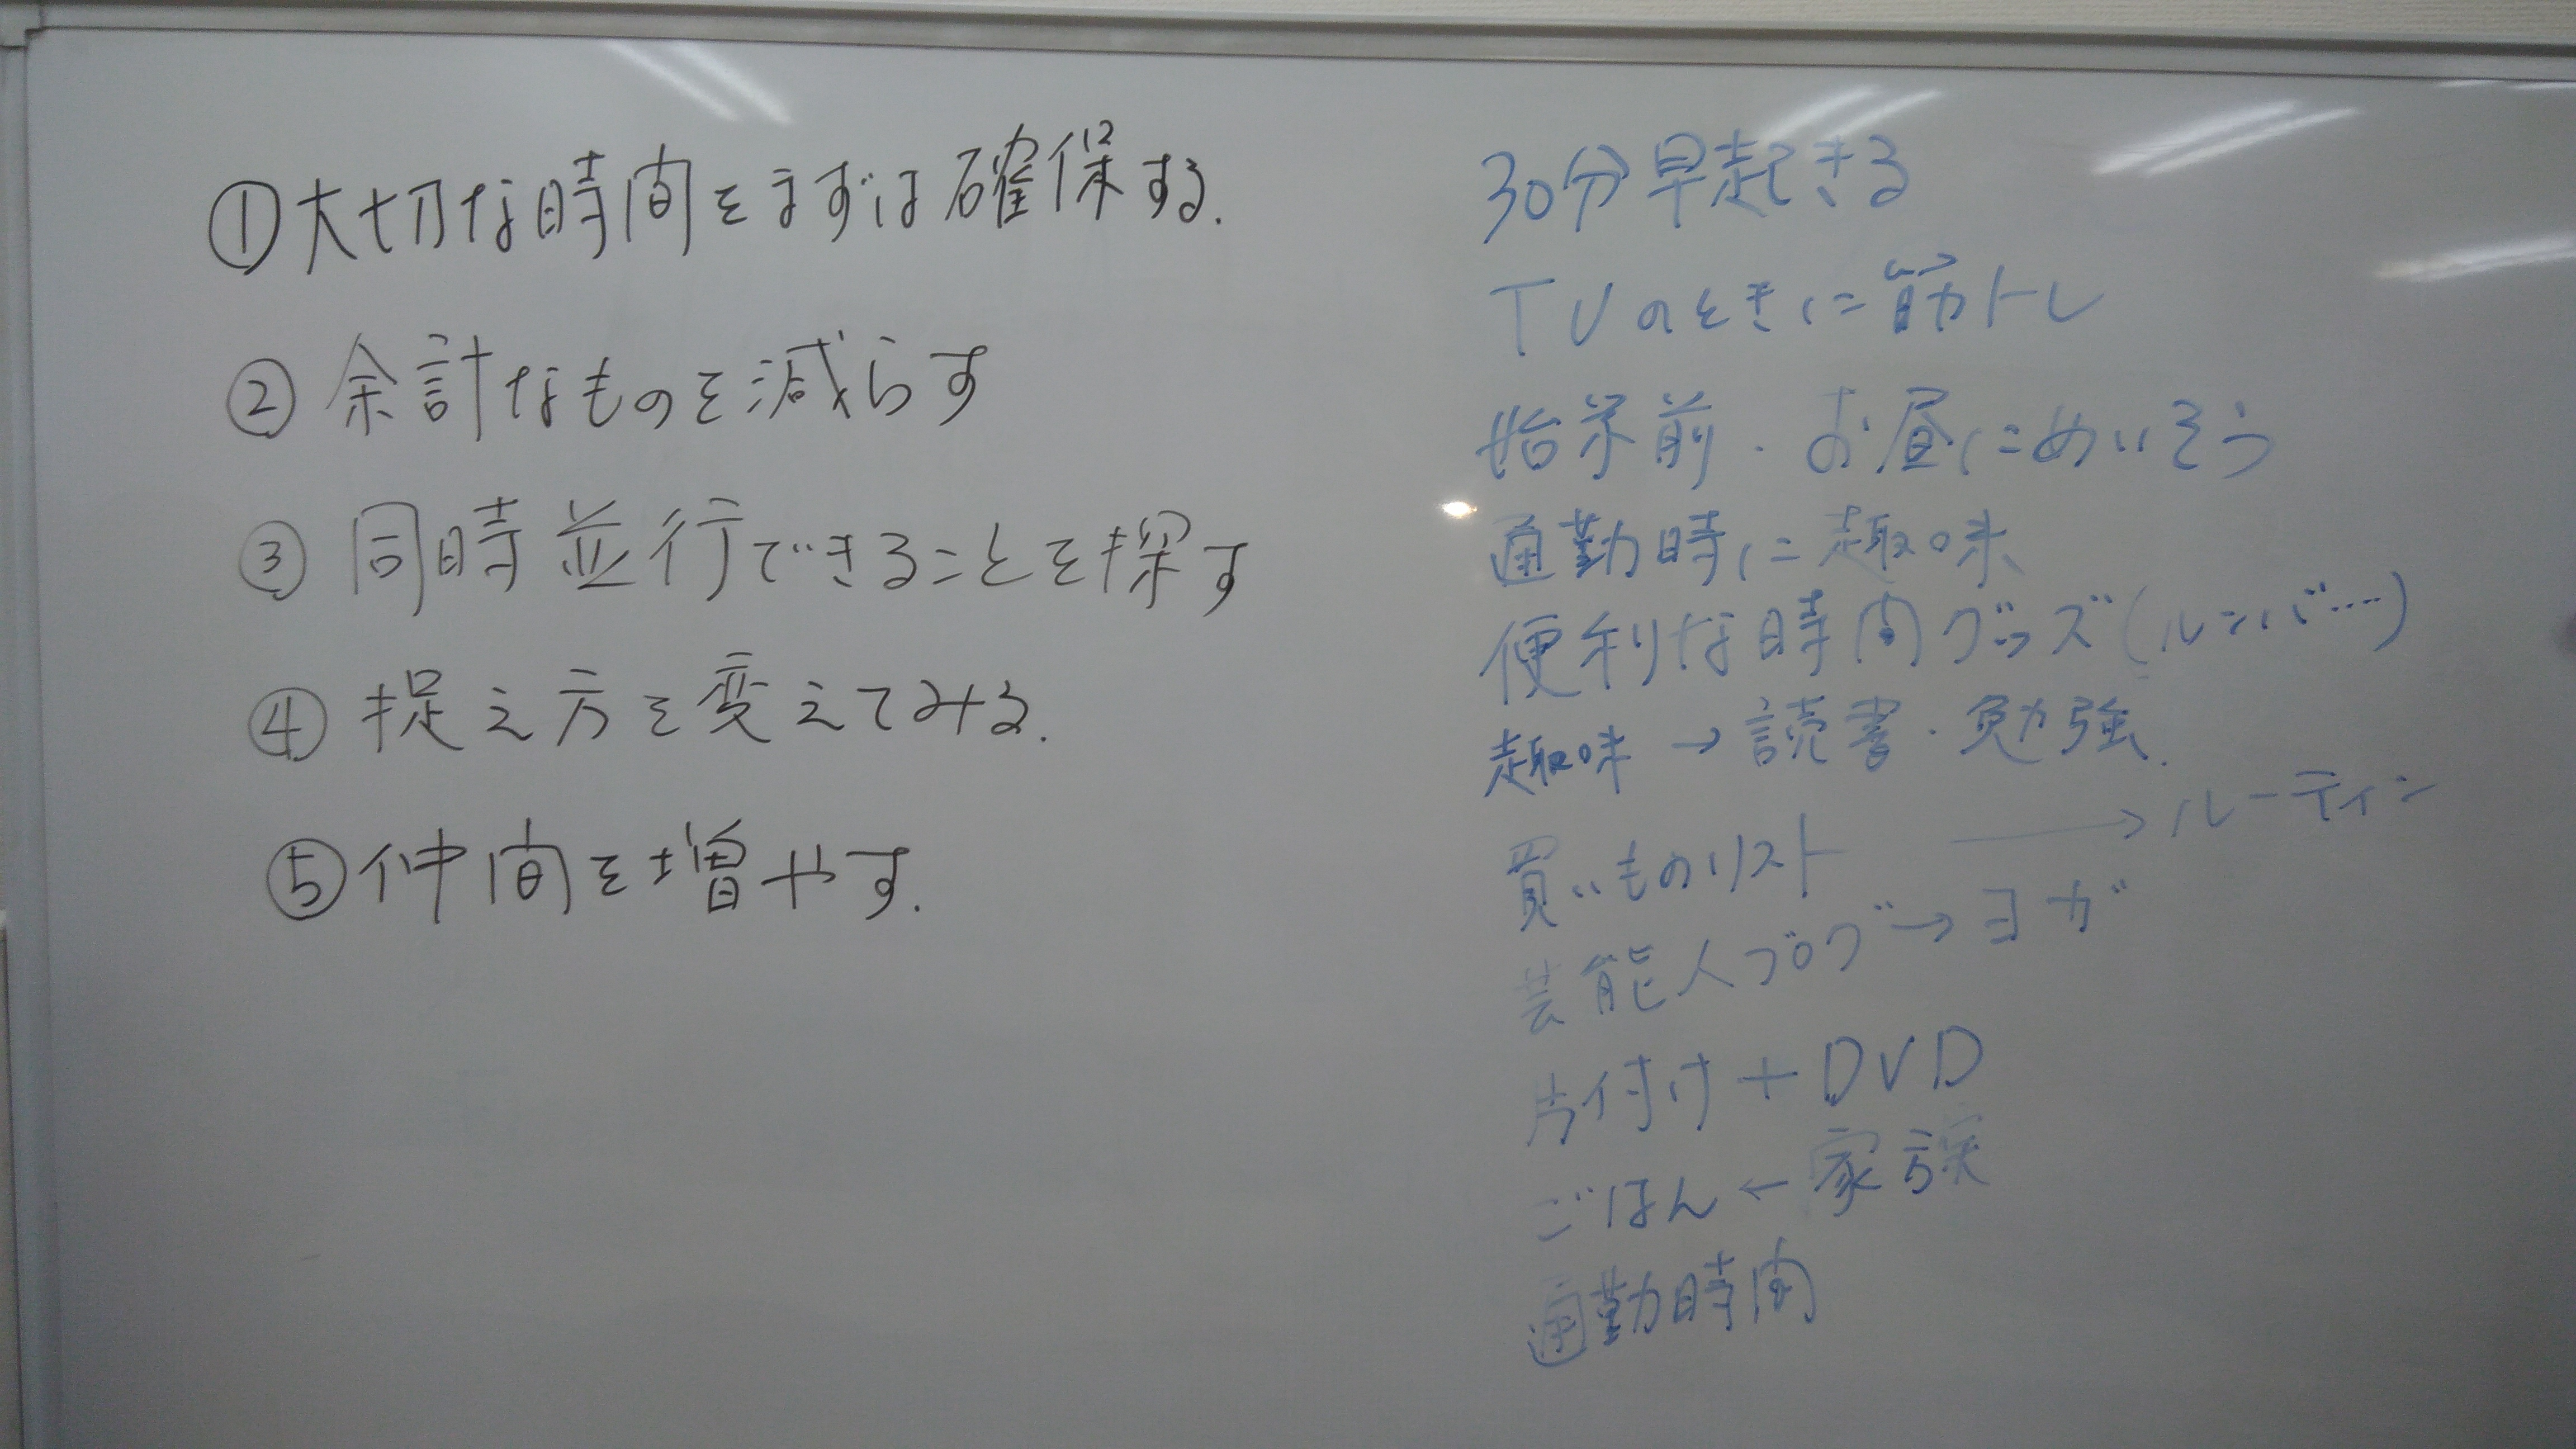 ①大切な時間をまずは確保する.
②余計なものを減らす
③同時並行できることを探す
④捉え方を変えてみる.
⑤仲間を増やす.
30分早起きる
TVのときに筋トレ
始業前・お昼にめいそう
通勤時に趣味
便利な時間グッズ(ルンバ…)
趣味→読書・勉強.
買いものリスト→ルーティン
芸能人ブログ→ヨガ
片付け+DVD
ごはん←家族
通勤時間